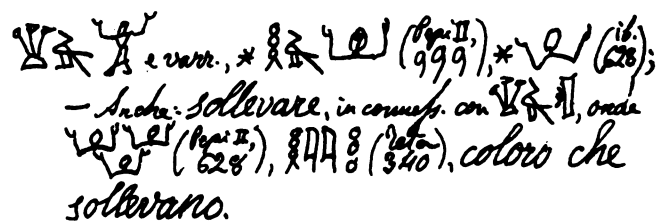 e varr., * (Pepi II, 999), * (ib. 628);
— Anche: sollevare, in conness. con , onde
(Pepi II, 628), (Teta 340), coloro che
sollevano.